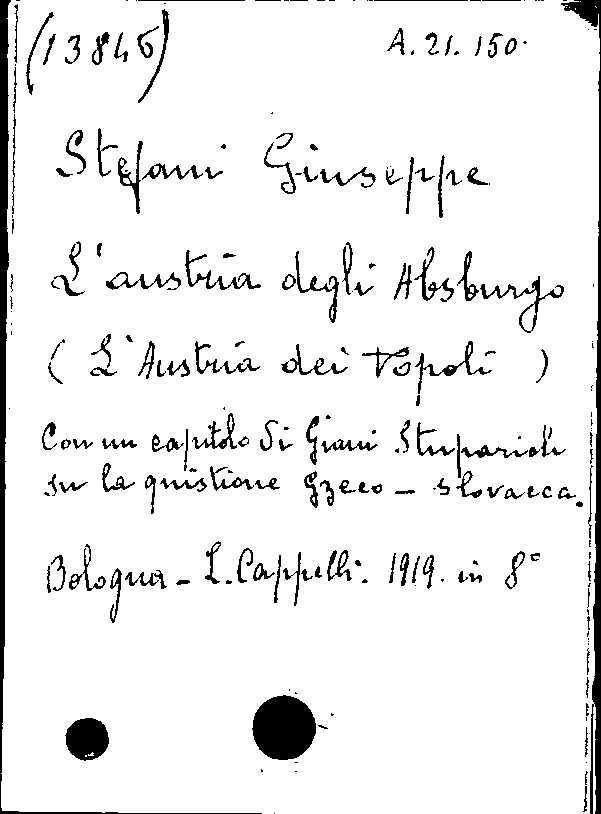 (13845) A. 21. 150.
Stefani Giuseppe
L'austria degli Absburgo
( L'Austria dei Popoli )
Con un capitolo di Giani Stuparich
su la quistione Czeco - slovacca.
Bologna - L. Cappelli. 1919. in 8°